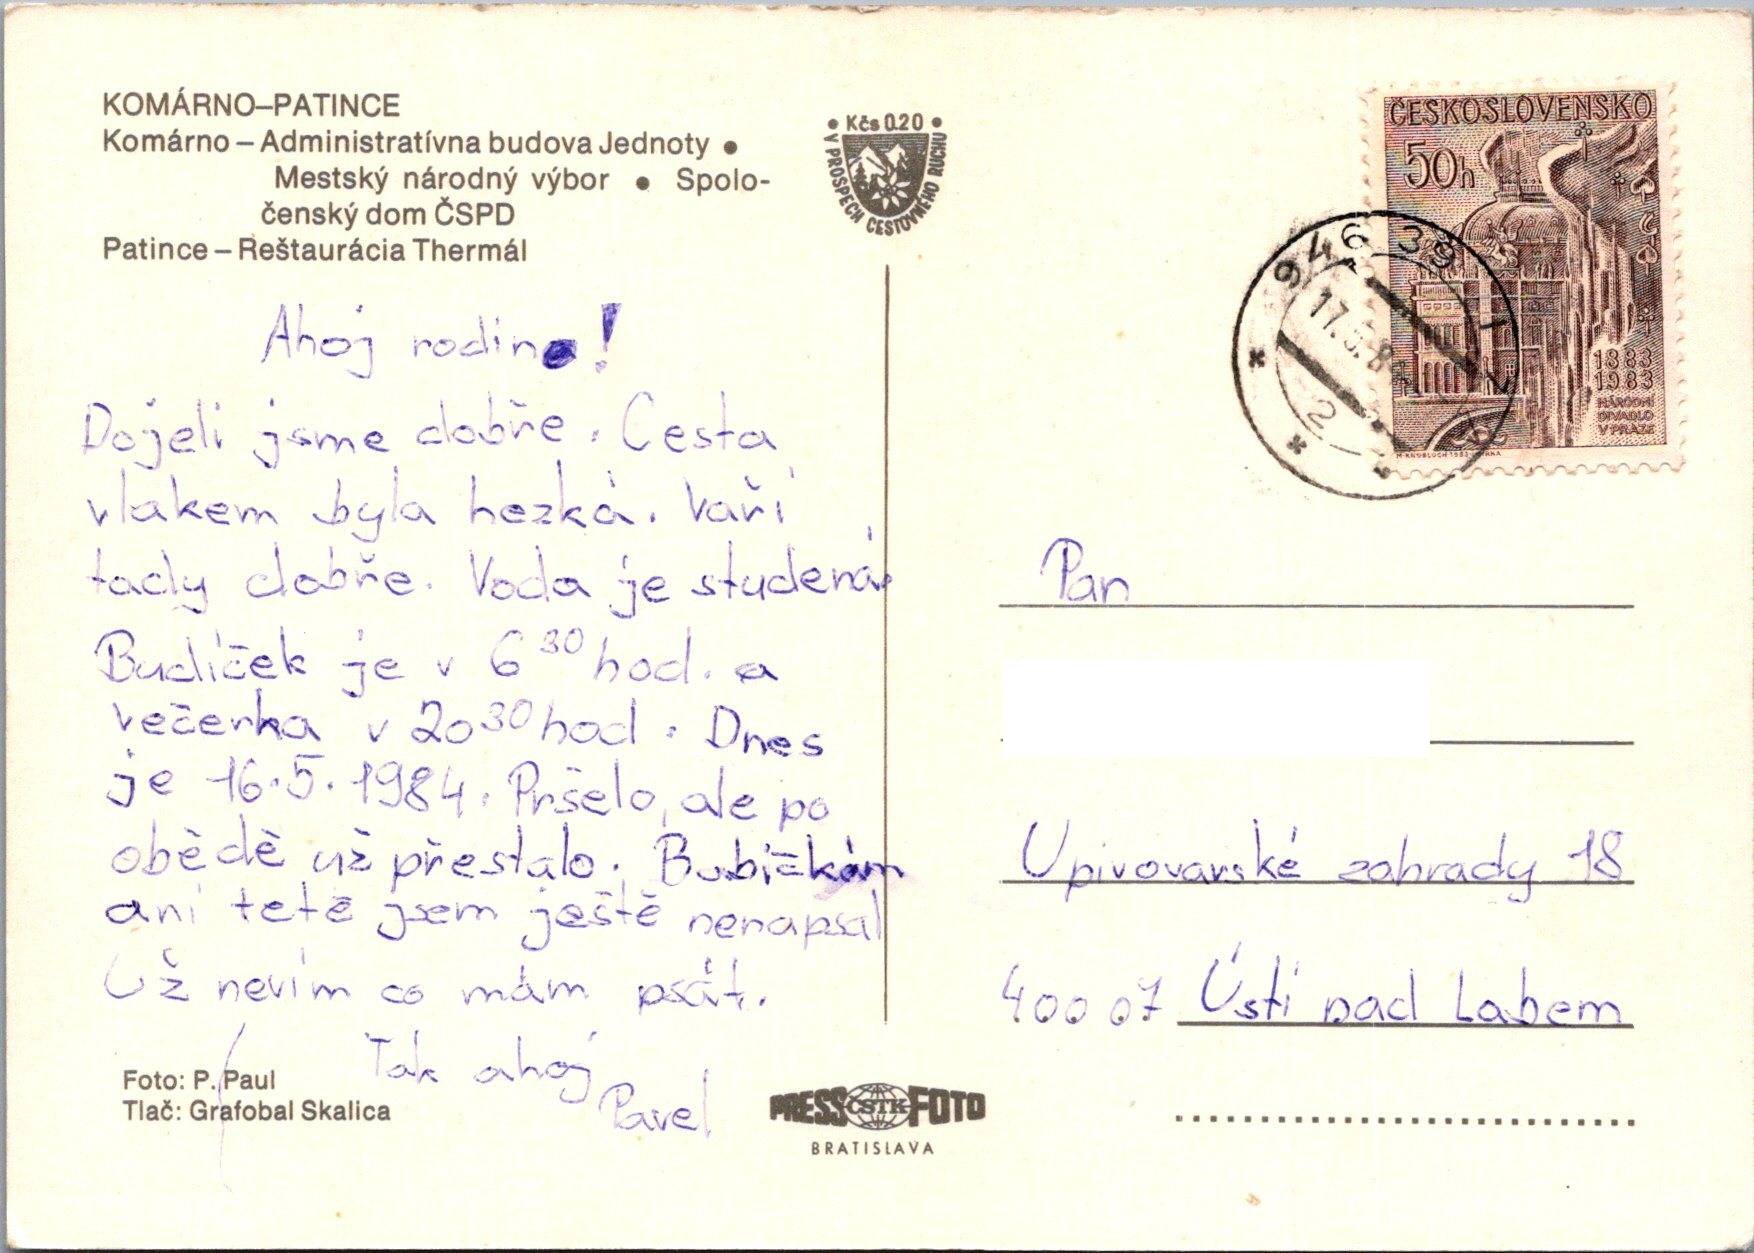 KOMÁRNO–PATINCE
Komárno – Administratívna budova Jednoty •
Mestský národný výbor • Spolo-
čenský dom ČSPD
Patince – Reštaurácia Thermál
• Kčs 0.20 •
V PROSPECH CESTOVNÉHO RUCHU
ČESKOSLOVENSKO
50h
1883
1983
NÁRODNÍ
DIVADLO
V PRAZE
M. KNOBLOCH 1983
946 39
17.
2
Ahoj rodino!
Dojeli jsme dobře. Cesta
vlakem byla hezká. Vaří
tady dobře. Voda je studená.
Budíček je v 6 30 hod. a
večerka v 20 30 hod. Dnes
je 16.5.1984. Pršelo, ale po
obědě už přestalo. Bubičkám
ani tetě jsem ještě nenapsal
Už nevím co mám psát.
Tak ahoj
Pavel
Pan
U pivovarské zahrady 18
400 07 Ústí nad Labem
Foto: P. Paul
Tlač: Grafobal Skalica
PRESS ČSTK FOTO
BRATISLAVA